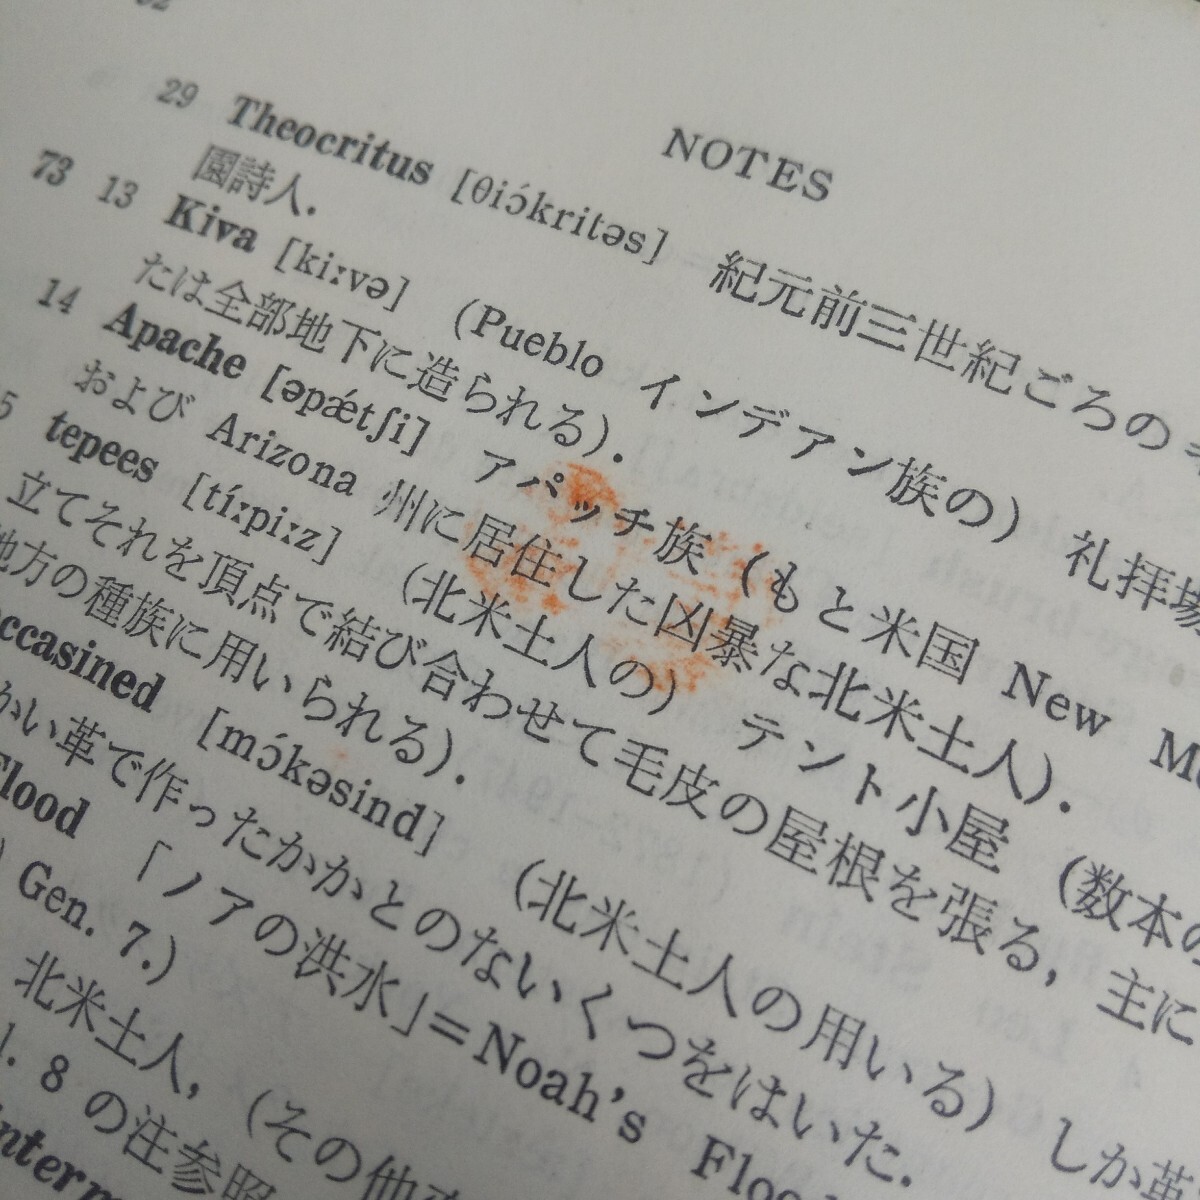 NOTES
29 Theocritus [θiɔ́kritəs] 紀元前三世紀ごろの
園詩人.
73 13 Kiva [kiːvə] (Pueblo インデアン族の) 礼拝場
たは全部地下に造られる).
14 Apache [əpǽtʃi] アパッチ族 (もと米国 New M
および Arizona 州に居住した凶暴な北米土人).
5 tepees [tíːpiːz] (北米土人の) テント小屋 (数本の
立てそれを頂点で結び合わせて毛皮の屋根を張る, 主に
地方の種族に用いられる).
ccasined [mɔ́kəsind] (北米土人の用いる) しか革
かい革で作ったかかとのないくつをはいた.
Flood 「ノアの洪水」=Noah's Floo
Gen. 7.)
北米土人, (その他
l. 8 の注参照